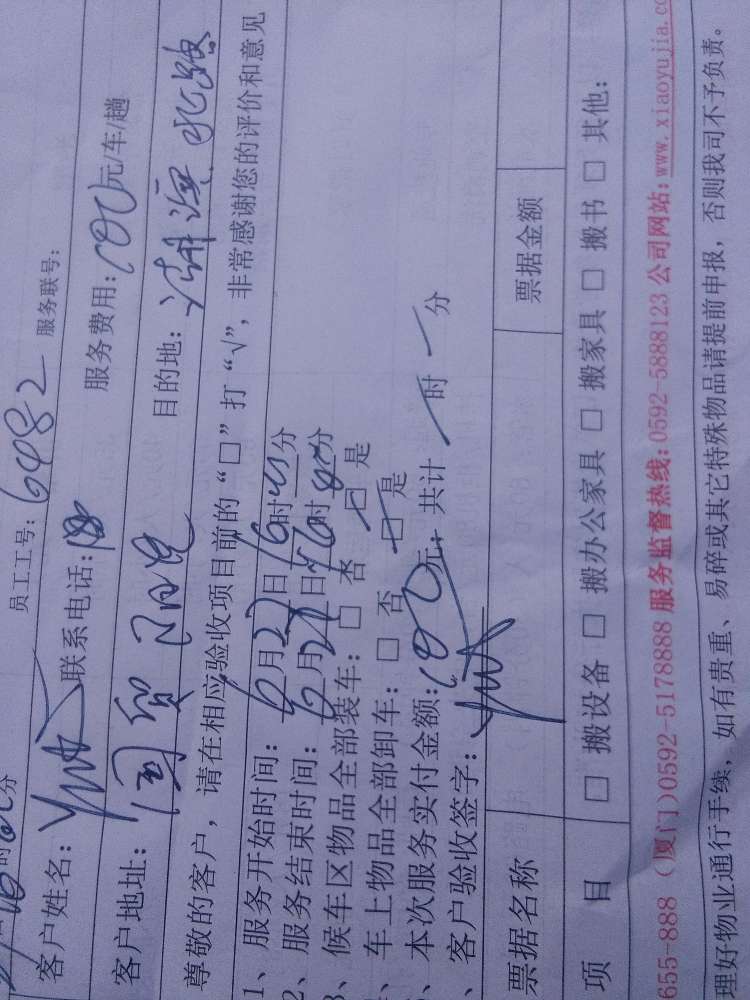 时 分
员工工号：6482 服务联号：
客户姓名： 联系电话：
服务费用：100元/车/趟
客户地址：国贸阳光 目的地： 北路
尊敬的客户，请在相应验收项目前的“□”打“√”，非常感谢您的评价和意见
1、服务开始时间：6月27日16时 分
2、服务结束时间：6月27日16时 分
3、候车区物品全部装车：□ 否 □ 是
、车上物品全部卸车：□ 否 □ 是
、本次服务实付金额：100元；共计 时 分
、客户验收签字：
票据名称 票据金额
项 目 □ 搬设备 □ 搬办公家具 □ 搬家具 □ 搬书 □ 其他：
655-888 （厦门）0592-5178888 服务监督热线：0592-5888123 公司网站：www.xiaoyujia.co
理好物业通行手续，如有贵重、易碎或其它特殊物品请提前申报，否则我司不予负责。